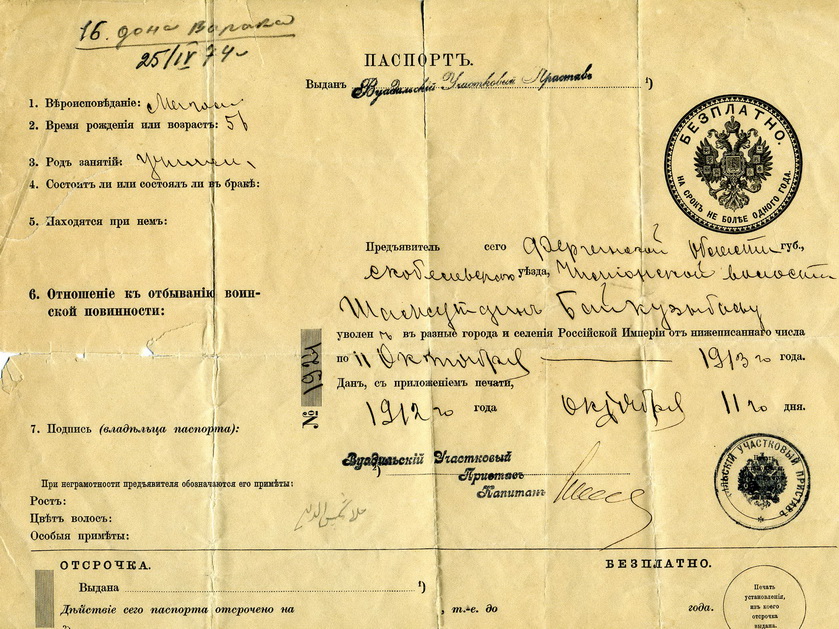 16. дона
25/IV 74
ПАСПОРТЪ.
Выданъ Вуадильскій Участковый Приставъ ¹)
1. Вѣроисповѣданіе:
2. Время рожденія или возрастъ:
3. Родъ занятій:
4. Состоитъ ли или состоялъ ли въ бракѣ:
5. Находятся при немъ:
БЕЗПЛАТНО.
НА СРОКЪ НЕ БОЛѢЕ ОДНОГО ГОДА.
Предъявитель сего Ферганской Области губ.,
уѣзда, волости
6. Отношеніе къ отбыванію воин-
ской повинности:
Шамсутдинъ
уволен въ разные города и селенія Россійской Имперіи отъ нижеписаннаго числа
по 11 Октября 1913 го года.
Данъ, съ приложеніемъ печати,
№ 1921
1912 го года октября 11 го дня.
7. Подпись (владѣльца паспорта):
Вуадильскій Участковый
Приставъ
Капитанъ
УЧАСТКОВЫЙ ПРИСТАВЪ
При неграмотности предъявителя обозначаются его примѣты:
Ростъ:
Цвѣтъ волосъ:
Особыя примѣты:
ОТСРОЧКА. БЕЗПЛАТНО.
Выдана ¹)
Дѣйствіе сего паспорта отсрочено на , т.-е. до года.
Печать
установленія,
изъ коего
отсрочка
выдана.